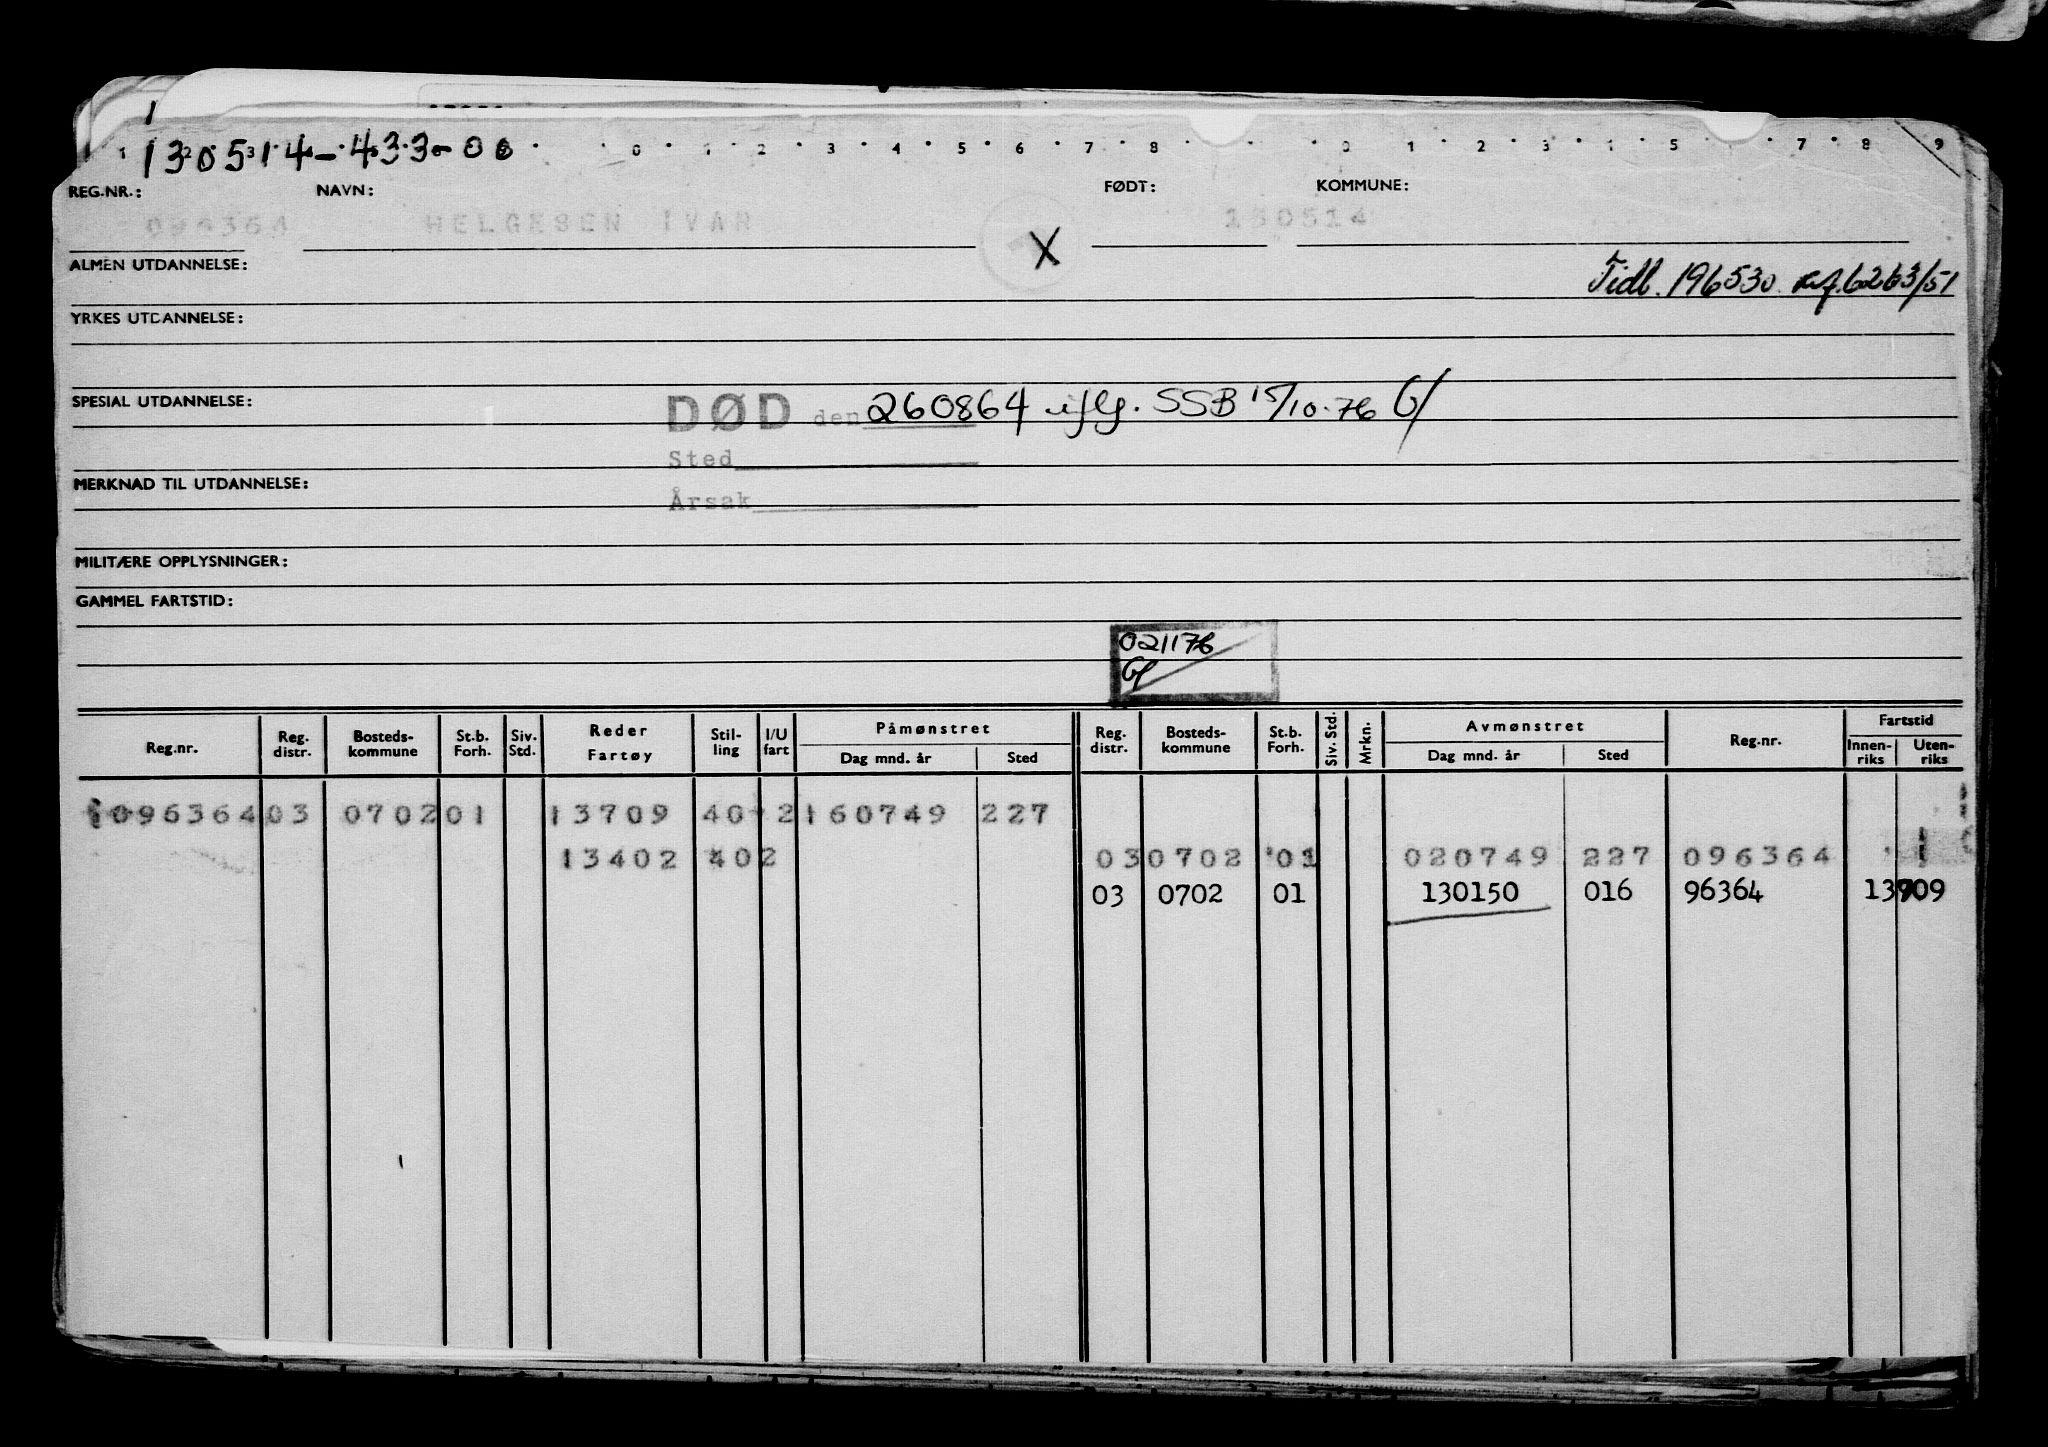 130514-433-00
0 1 2 3 4 5 6 7 8 0 1 2 3 4 5 7 8 9
REG.NR.: NAVN: FØDT: KOMMUNE:
096364 HELGESEN IVAR 130514
X
ALMEN UTDANNELSE: Tidl. 196530 ref. 6263/51
YRKES UTDANNELSE:
SPESIAL UTDANNELSE:
DØD den 260864 iflg. SSB 15/10-76
Sted
MERKNAD TIL UTDANNELSE:
Årsak
MILITÆRE OPPLYSNINGER:
GAMMEL FARTSTID:
021176
Reg.nr. Reg. distr. Bosteds-kommune St.b. Forh. Siv. Std. Reder Fartøy Stil-ling I/U fart Påmønstret Dag mnd. år Sted Reg. distr. Bosteds-kommune St.b. Forh. Siv. Std. Mrkn. Avmønstret Dag mnd. år Sted Reg.nr. Fartstid Innen-riks Uten-riks
096364 03 0702 01 13709 40 2 160749 227
13402 40 2 03 0702 01 020749 227 096364
03 0702 01 130150 016 96364 13709